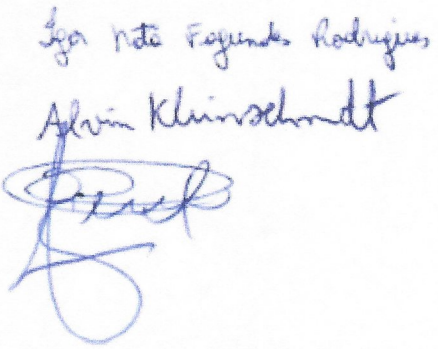 Igor Natã Fagundes Rodrigues
Alvin Kleinschmidt